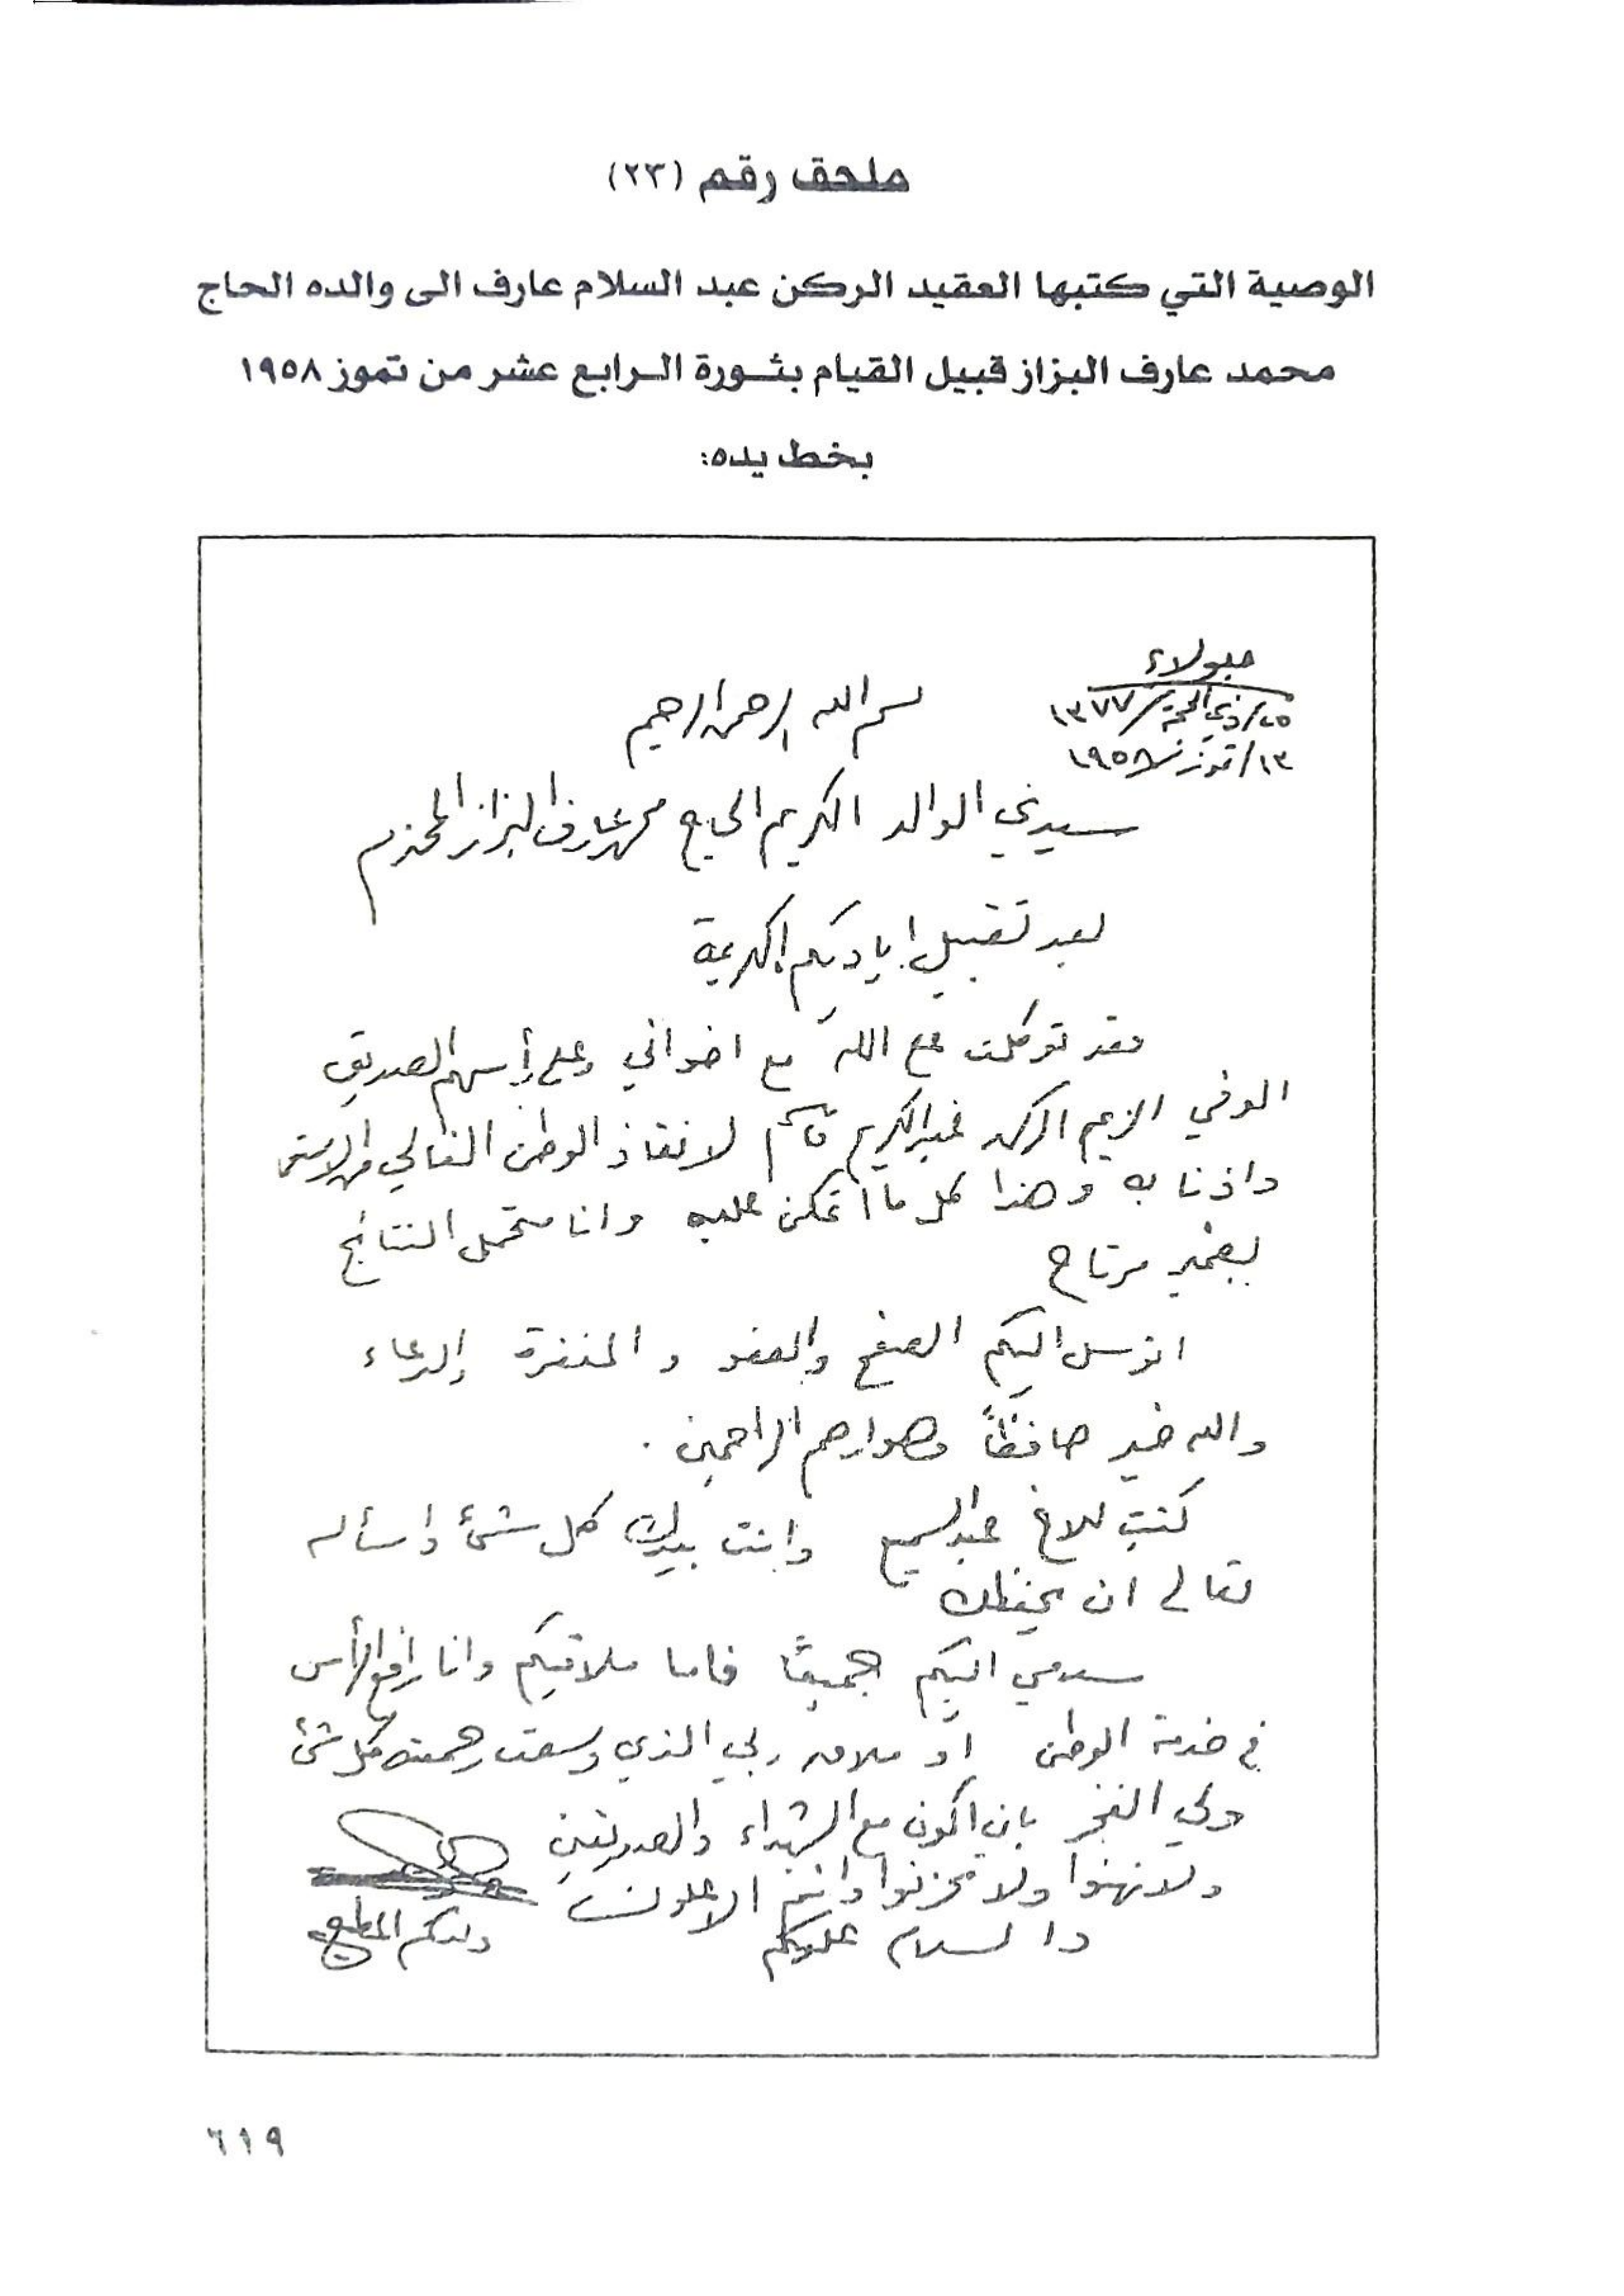 ملحق رقم (٢٣)
الوصية التي كتبها العقيد الركن عبد السلام عارف الى والده الحاج
محمد عارف البزاز قبيل القيام بثورة الرابع عشر من تموز ١٩٥٨
بخط يده:
جلولاء
٢٥/ذي الحجة/١٣٧٧
١٣/تموز/١٩٥٨
بسم الله الرحمن الرحيم
سيدي الوالد الكريم الحاج محمد عارف البزاز المحترم
بعد تقبيل اياديكم الكريمة
فقد توكلت على الله مع اخواني وعلى رأسهم الصديق
الوفي الزعيم الركن عبدالكريم قاسم لانقاذ الوطن الغالي من
واذنابه وهذا كل ما اتمكن عليه وانا متحمل النتائج
بضمير مرتاح
اتوسل اليكم الصفح والعفو والمغفرة والدعاء
والله خير حافظاً وهو ارحم الراحمين.
كتبت للاخ عبدالسميع وانت بيدك كل شئ واسأله
تعالى ان يحفظك
سلامي اليكم جميعاً فاما ملاقيكم وانا رافع الرأس
في خدمة الوطن او ملاق ربي الذي وسعت رحمته كل شئ
ولي الفخر بان اكون مع الشهداء والصديقين
ولا تهنوا ولا تحزنوا وانتم الاعلون
والسلام عليكم
ولدكم المطيع
٦١٩